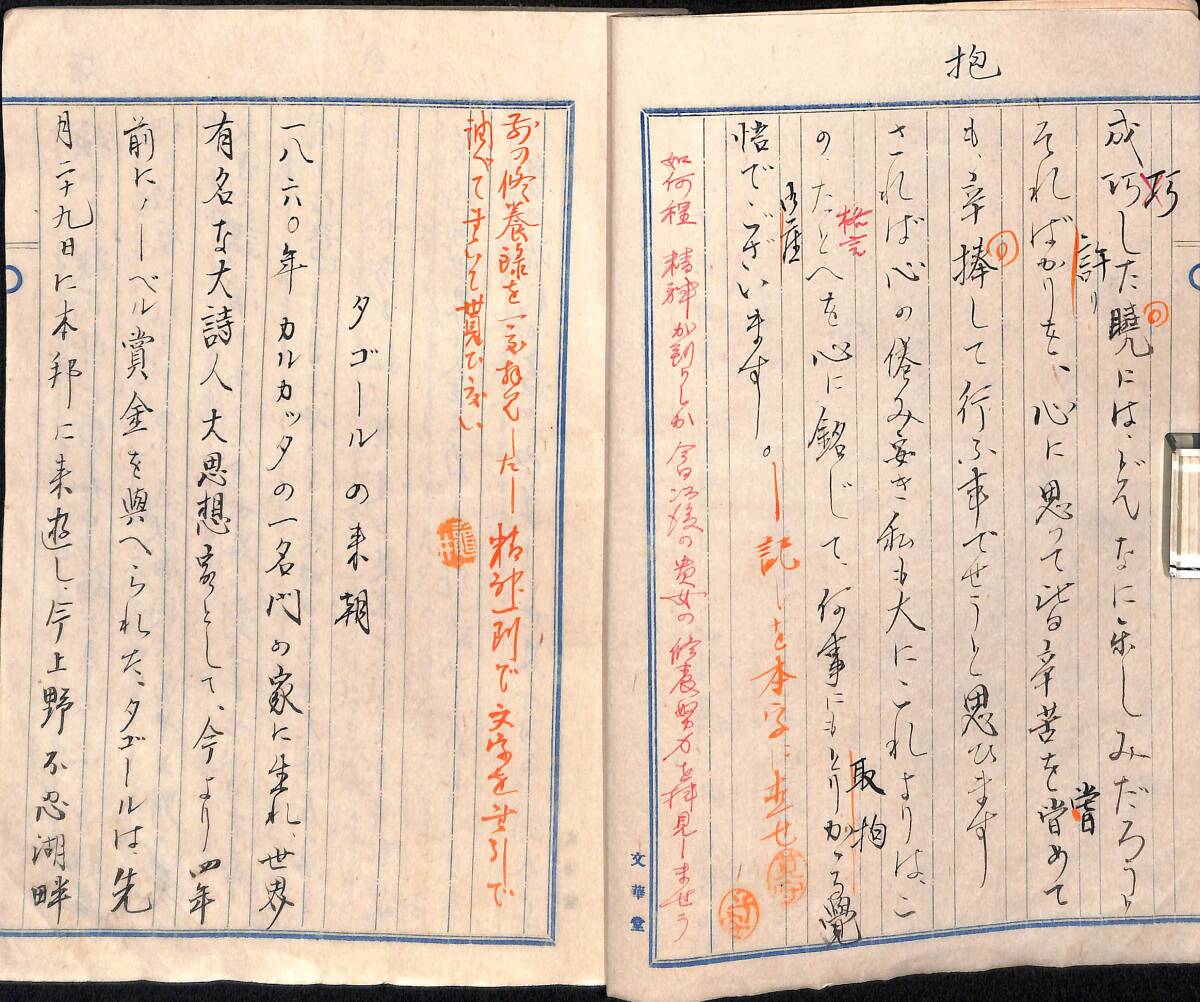 抱
成巧した曉には、どんなに楽しみだろうと
巧
そればかりを、心に思って皆辛苦を甞めて
許り
嘗
も、辛捧して行ふ事でせうと思ひます
されば心の倦み安き私も大にこれよりは、こ
の、たとへを心に銘じて、何事にもとりかゝる覺
格言
取拘
悟でございます。
御座
一記しを本字に直せ
如何程精神が到りしか今日以後の貴女の修養努力を拝見しませう
文華堂
前の修養録を一応拝見した 精神一到で文字を字引で
調べて書いて貰ひ度い
龍井
タゴールの来朝
一八六〇年カルカッタの一名門の家に生れ、世界
有名な大詩人大思想家として、今より四年
前にノーベル賞金を與へられた、タゴールは、先
月二十九日に本邦に来遊し、今上野不忍湖畔